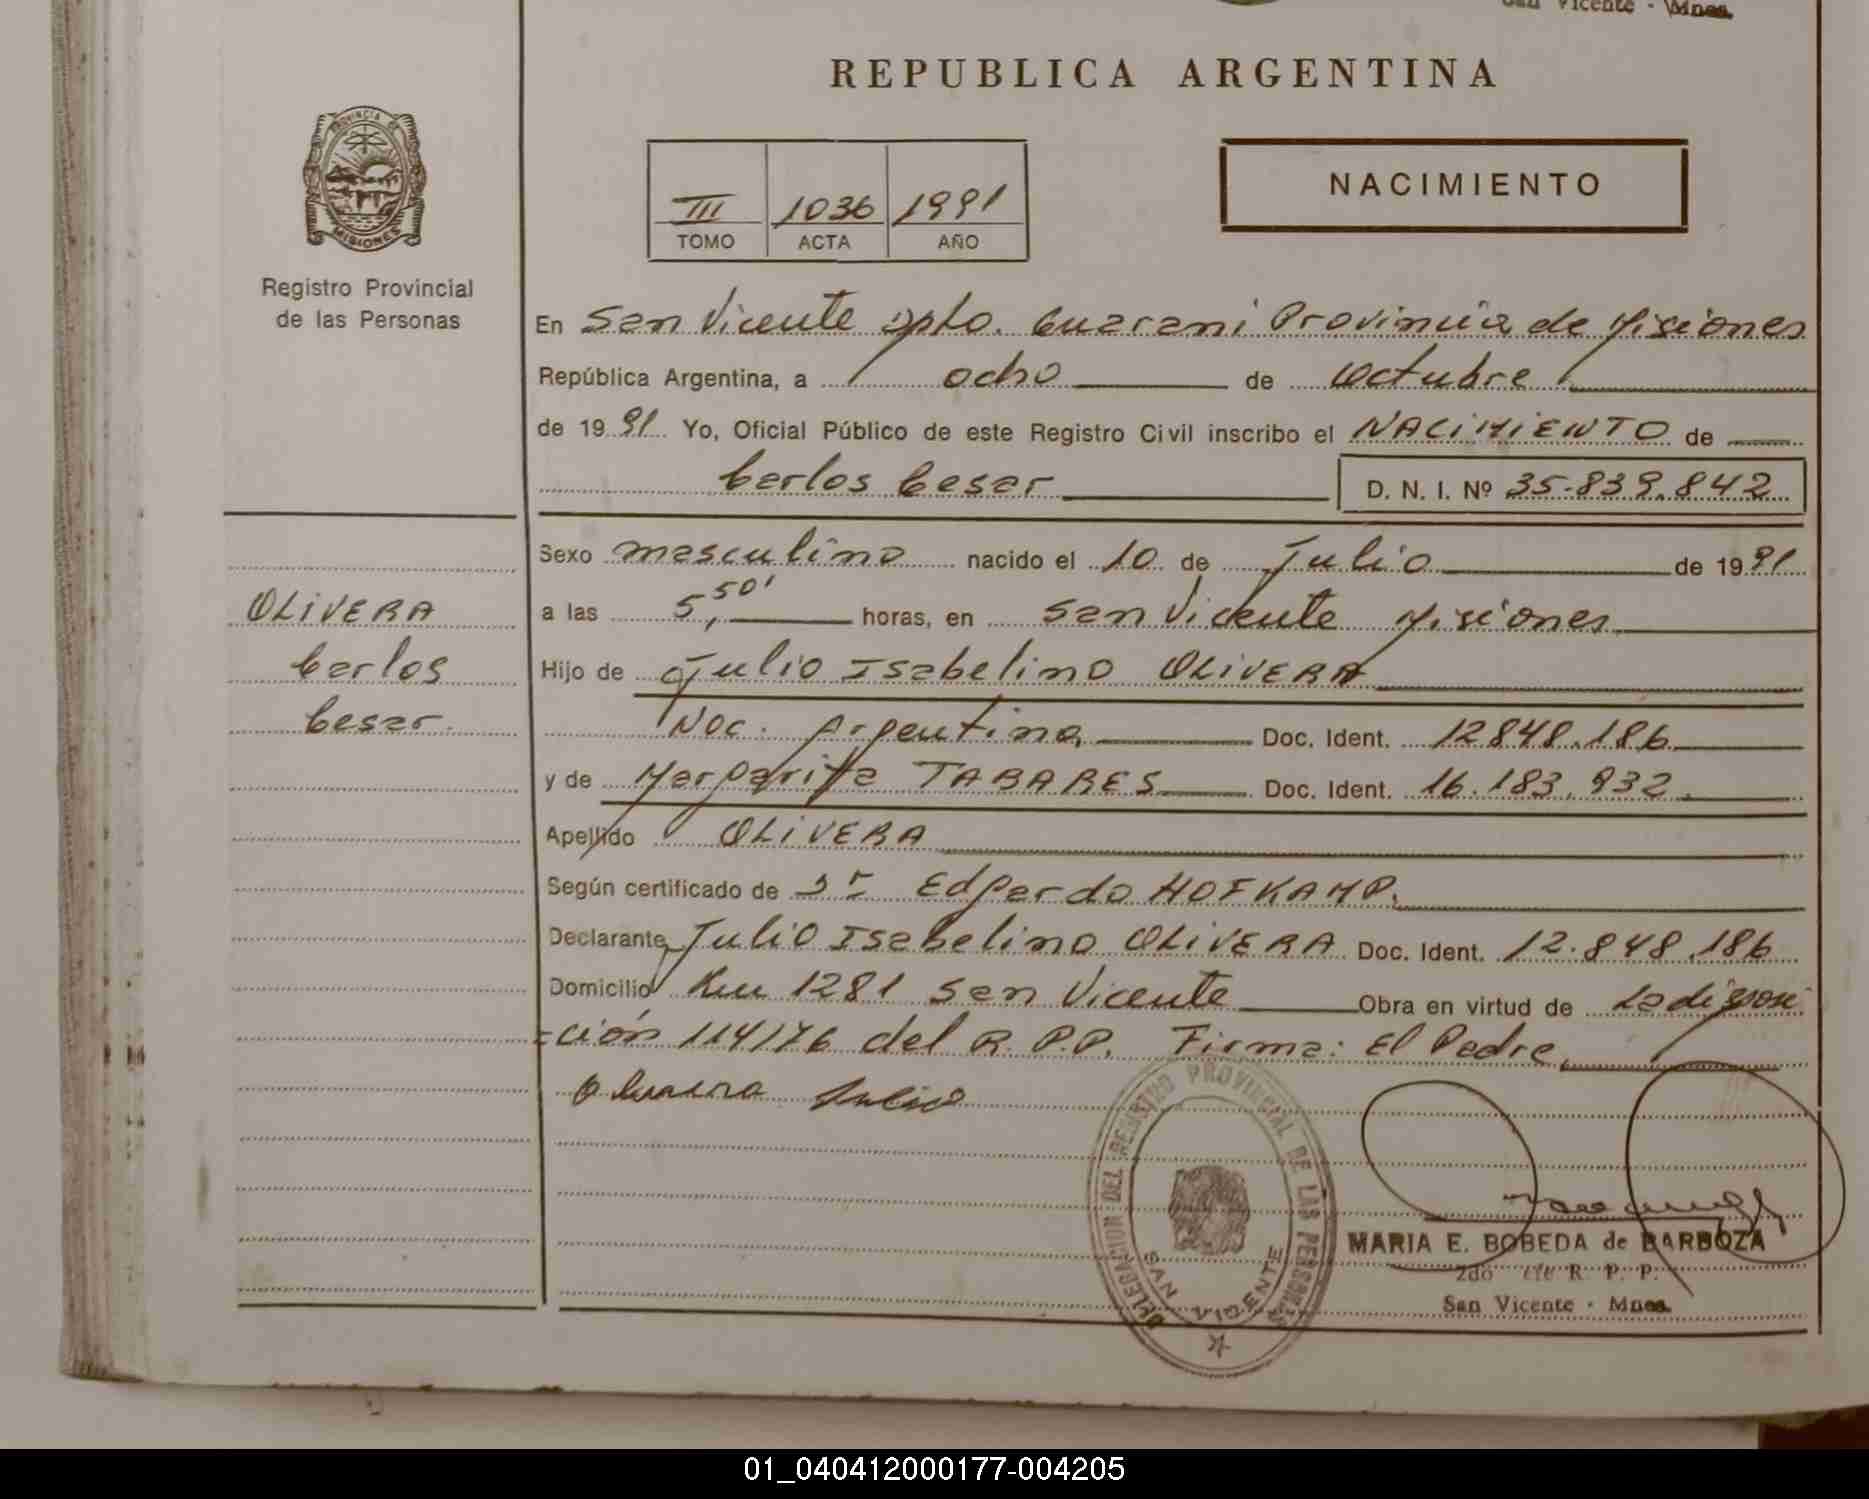 San Vicente - Mnes.
REPUBLICA ARGENTINA
PROVINCIA DE
MISIONES
III 1036 1991
TOMO ACTA AÑO
NACIMIENTO
Registro Provincial
de las Personas
En San Vicente Dpto. Guarani Provincia de Misiones
República Argentina, a ocho de Octubre
de 1991 Yo, Oficial Público de este Registro Civil inscribo el NACIMIENTO de
Carlos Cesar D. N. I. Nº 35.839.842
OLIVERA
Carlos
Cesar.
Sexo masculino nacido el 10 de Julio de 1991
a las 5,50' horas, en San Vicente Misiones
Hijo de Julio Isabelino OLIVERA
Nac. Argentina Doc. Ident. 12848.186
y de Margarita TABARES Doc. Ident. 16.183.932.
Apellido OLIVERA
Según certificado de Dr Edgardo HOFKAMP.
Declarante Julio Isabelino OLIVERA Doc. Ident. 12.848.186
Domicilio Km 1281 San Vicente Obra en virtud de la disposi
=ción 114/76 del R.P.P. Firma: El Padre
Olivera Julio
DELEGACION DEL REGISTRO PROVINCIAL DE LAS PERSONAS
SAN VICENTE
MARIA E. BOBEDA de BARBOZA
2do R. P. P.
San Vicente - Mnes.
01_040412000177-004205